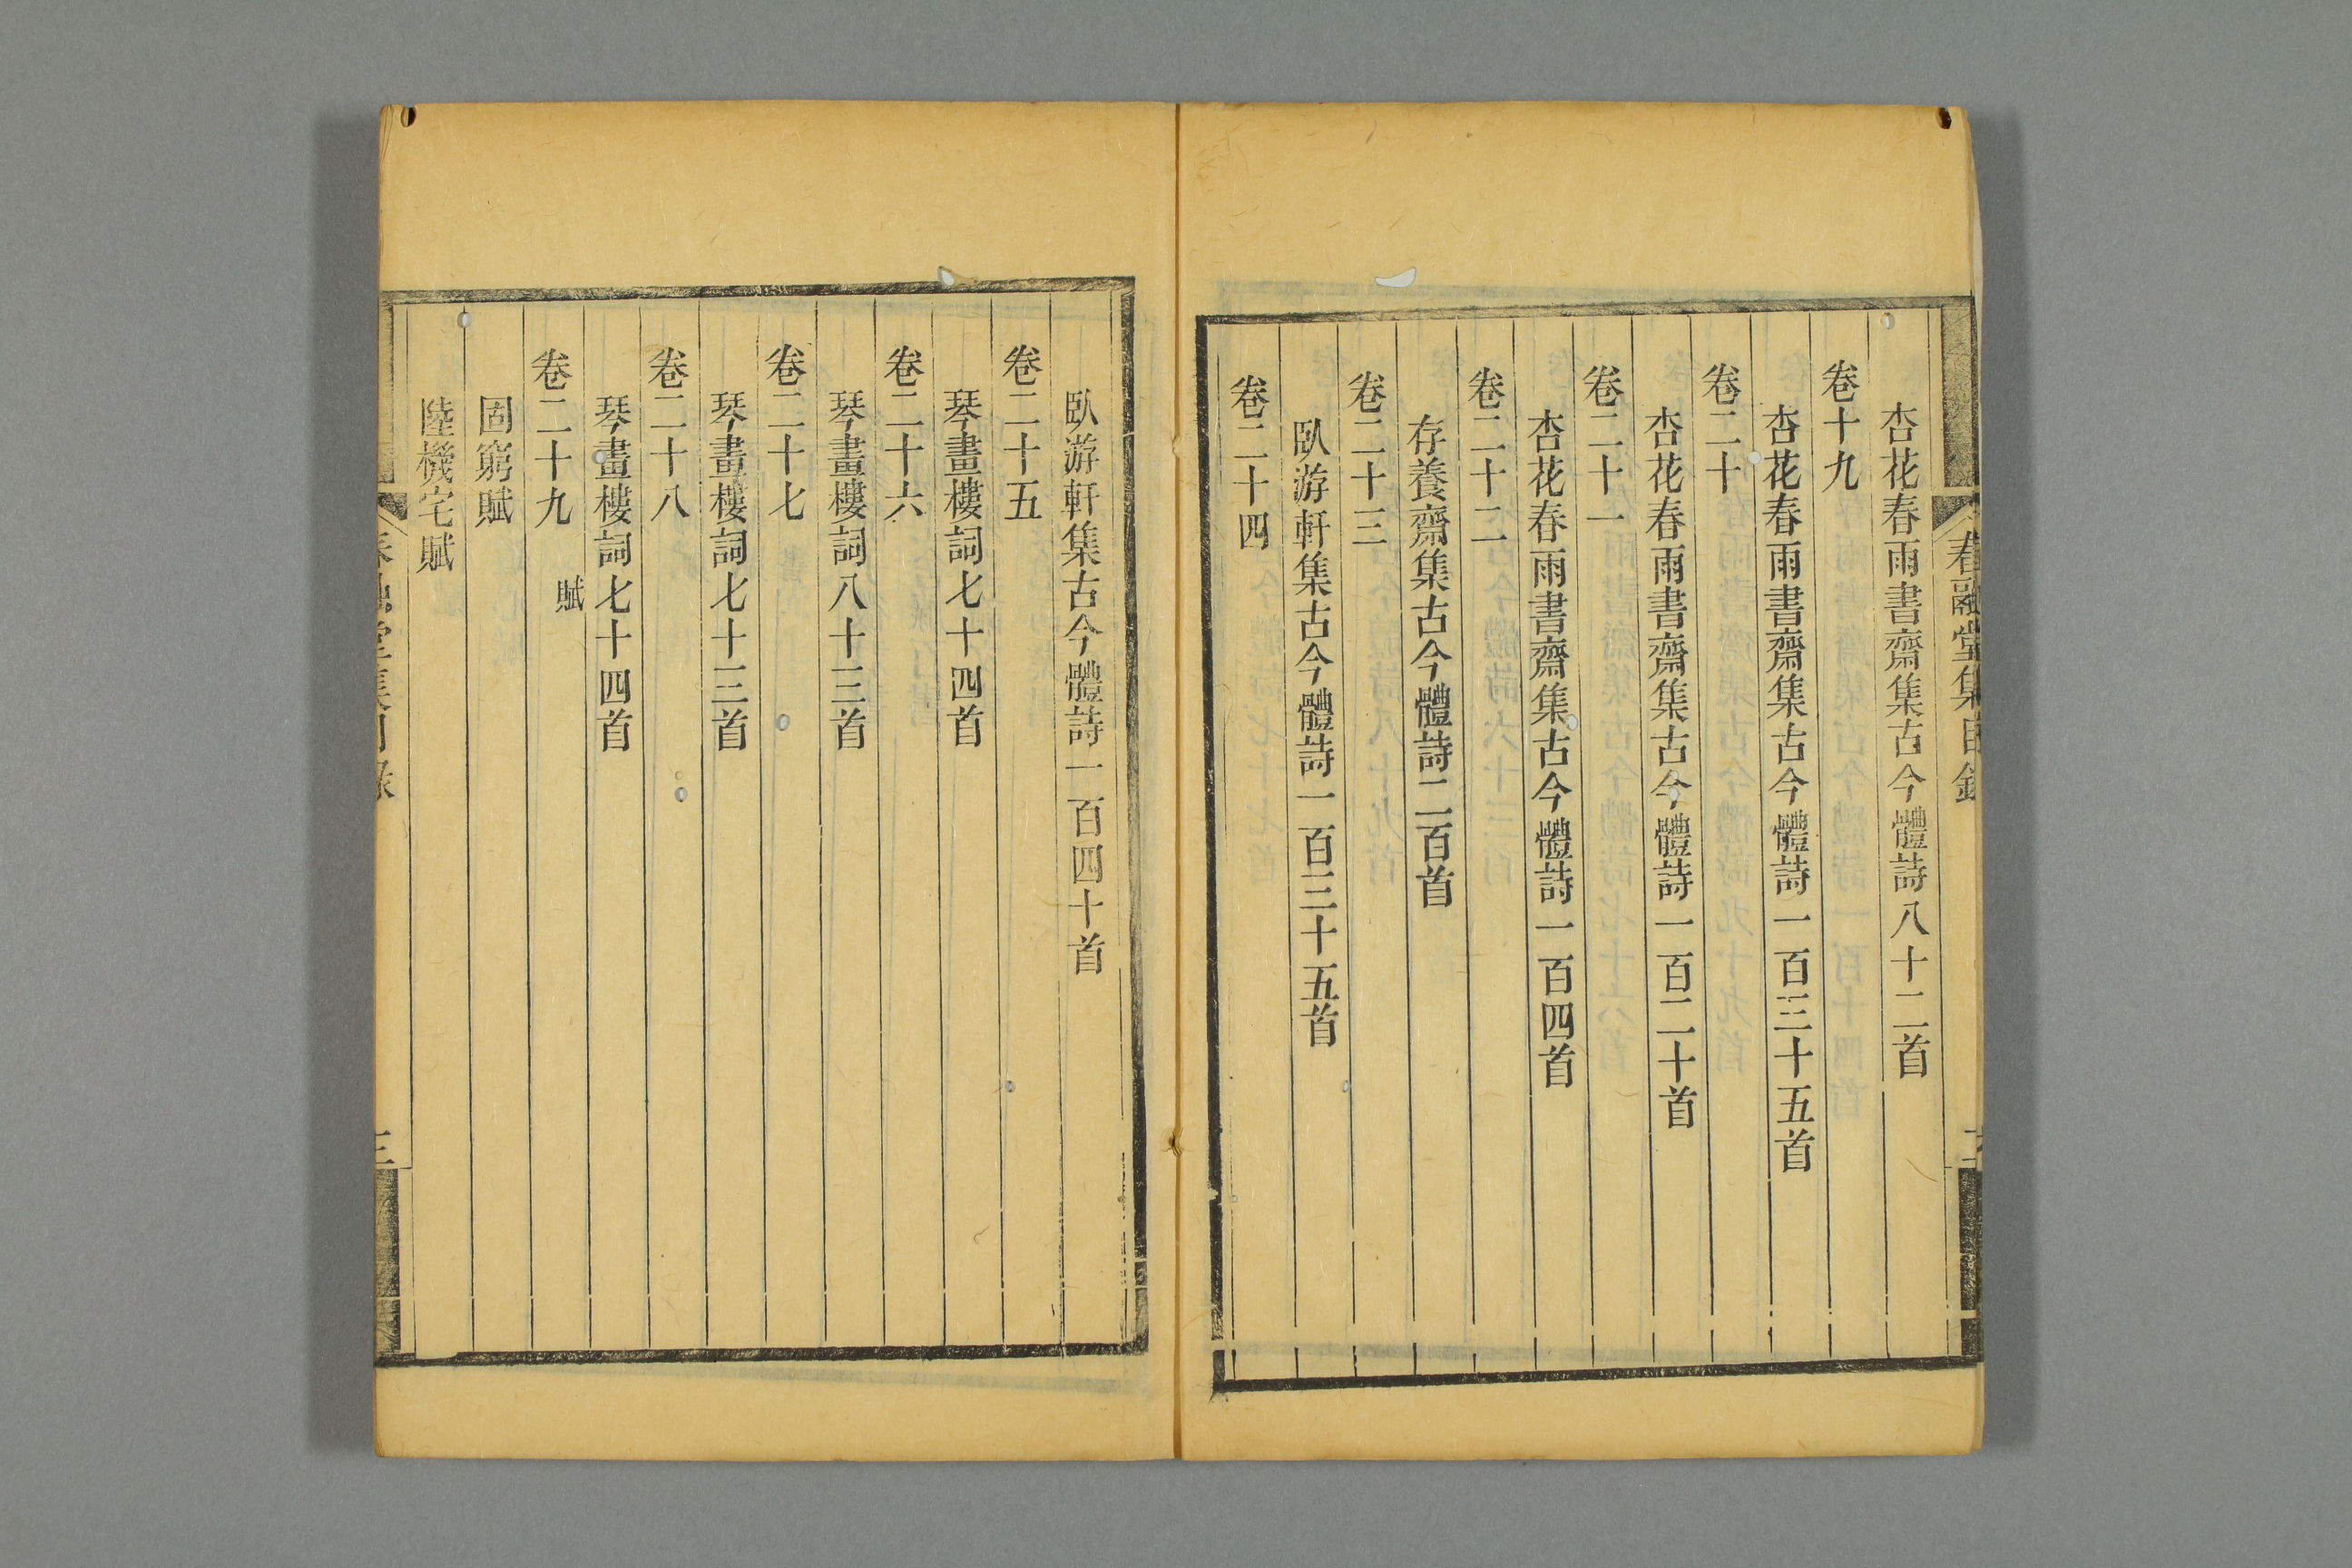 春融堂集目錄
杏花春雨書齋集古今體詩八十二首
卷十九
杏花春雨書齋集古今體詩一百三十五首
卷二十
杏花春雨書齋集古今體詩一百二十首
卷二十一
杏花春雨書齋集古今體詩一百四首
卷二十二
存養齋集古今體詩二百首
卷二十三
臥游軒集古今體詩一百三十五首
卷二十四
臥游軒集古今體詩一百四十首
卷二十五
琴畫樓詞七十四首
卷二十六
琴畫樓詞八十三首
卷二十七
琴畫樓詞七十三首
卷二十八
琴畫樓詞七十四首
卷二十九 賦
固窮賦
陸機宅賦
春融堂集目錄
三